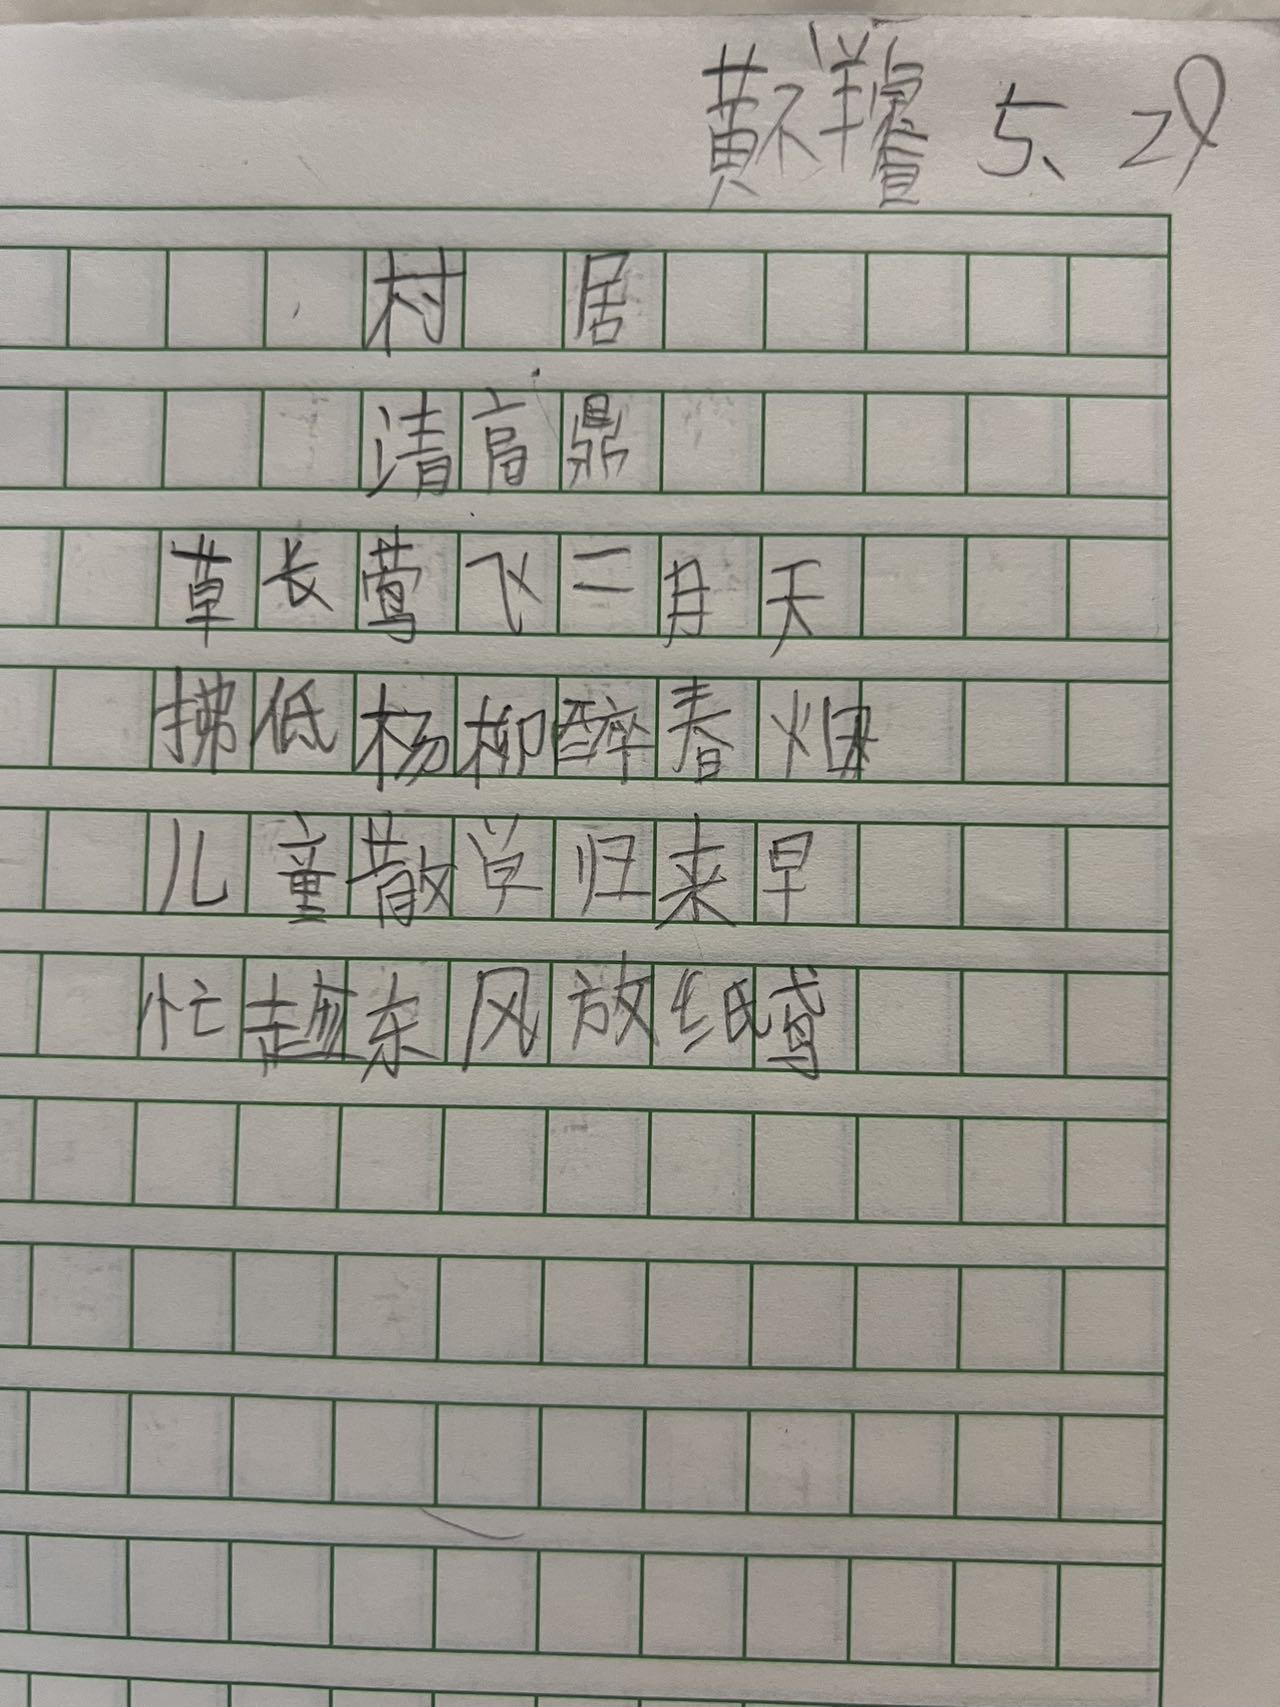 黄祥睿 5、29
村 居
清高鼎
草长莺飞二月天
拂低杨柳醉春烟
儿童散学归来早
忙趁东风放纸鸢